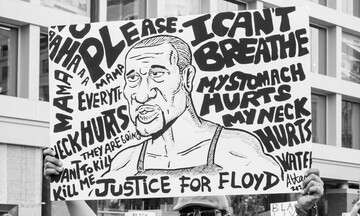 PLEASE. I CAN'T
BREATHE
MAMA
MAMA
EVERYT
MY STOMACH
HURTS
MY NECK
HURTS
NECK HURTS
THEY ARE GOING
TO KILL
KILL ME
WATER
JUSTICE FOR FLOYD